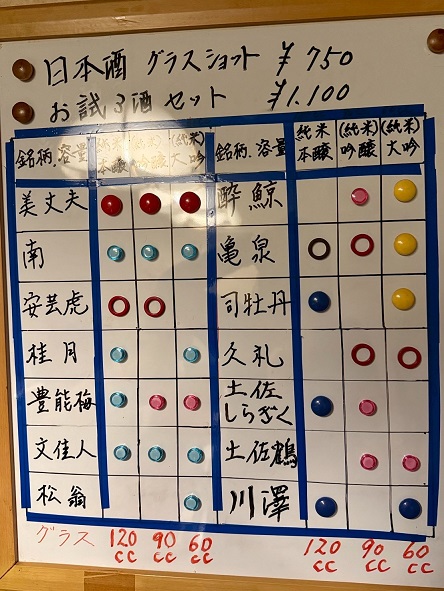 日本酒 グラスショット ¥750
お試3酒セット ¥1.100
銘柄.容量 純米本醸 (純米)吟醸 (純米)大吟 銘柄.容量 純米本醸 (純米)吟醸 (純米)大吟
美丈夫 酔鯨
南 亀泉
安芸虎 司牡丹
桂月 久礼
豊能梅 土佐しらぎく
文佳人 土佐鶴
松翁 川澤
グラス 120cc 90cc 60cc 120cc 90cc 60cc